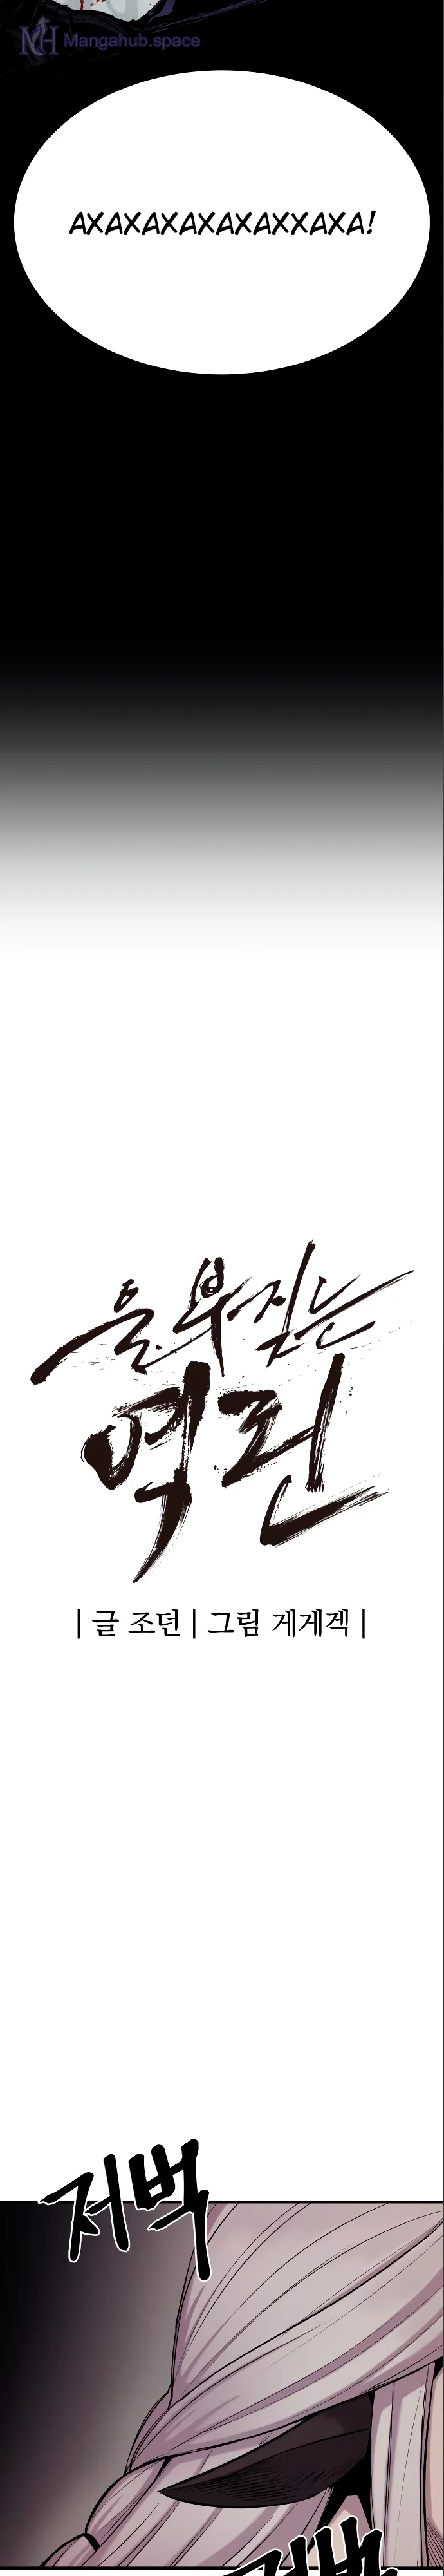 Mangahub.space
АХАХАХАХАХАХХАХА!
울부짖는
역린
| 글 조던 | 그림 게게겍 |
저벅
저벅